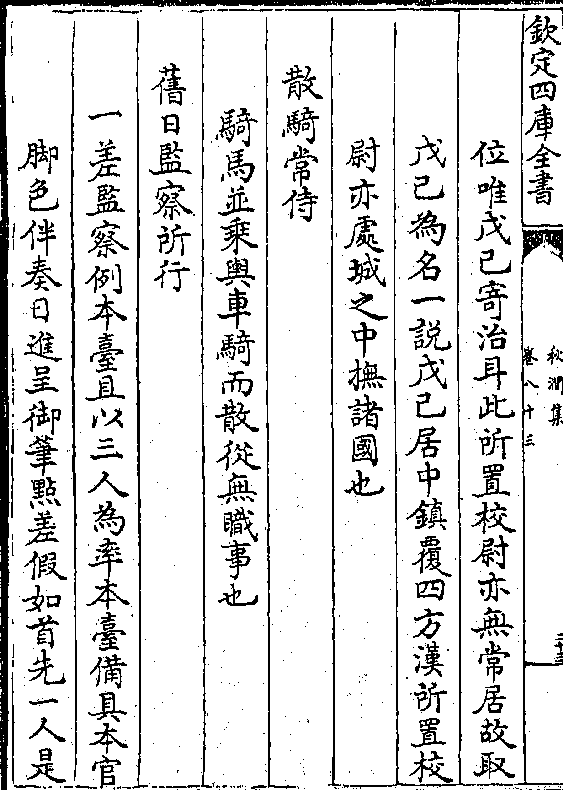 欽定四庫全書
秋澗集
卷八十三
位唯戊己寄治耳此所置校尉亦無常居故取
戊己為名一説戊己居中鎮覆四方漢所置校
尉亦處城之中撫諸國也
散騎常侍
騎馬並乘輿車騎而散從無職事也
舊日監察所行
一差監察例本臺且以三人為率本臺備具本官
脚色伴奏日進呈御筆點差假如首先一人是